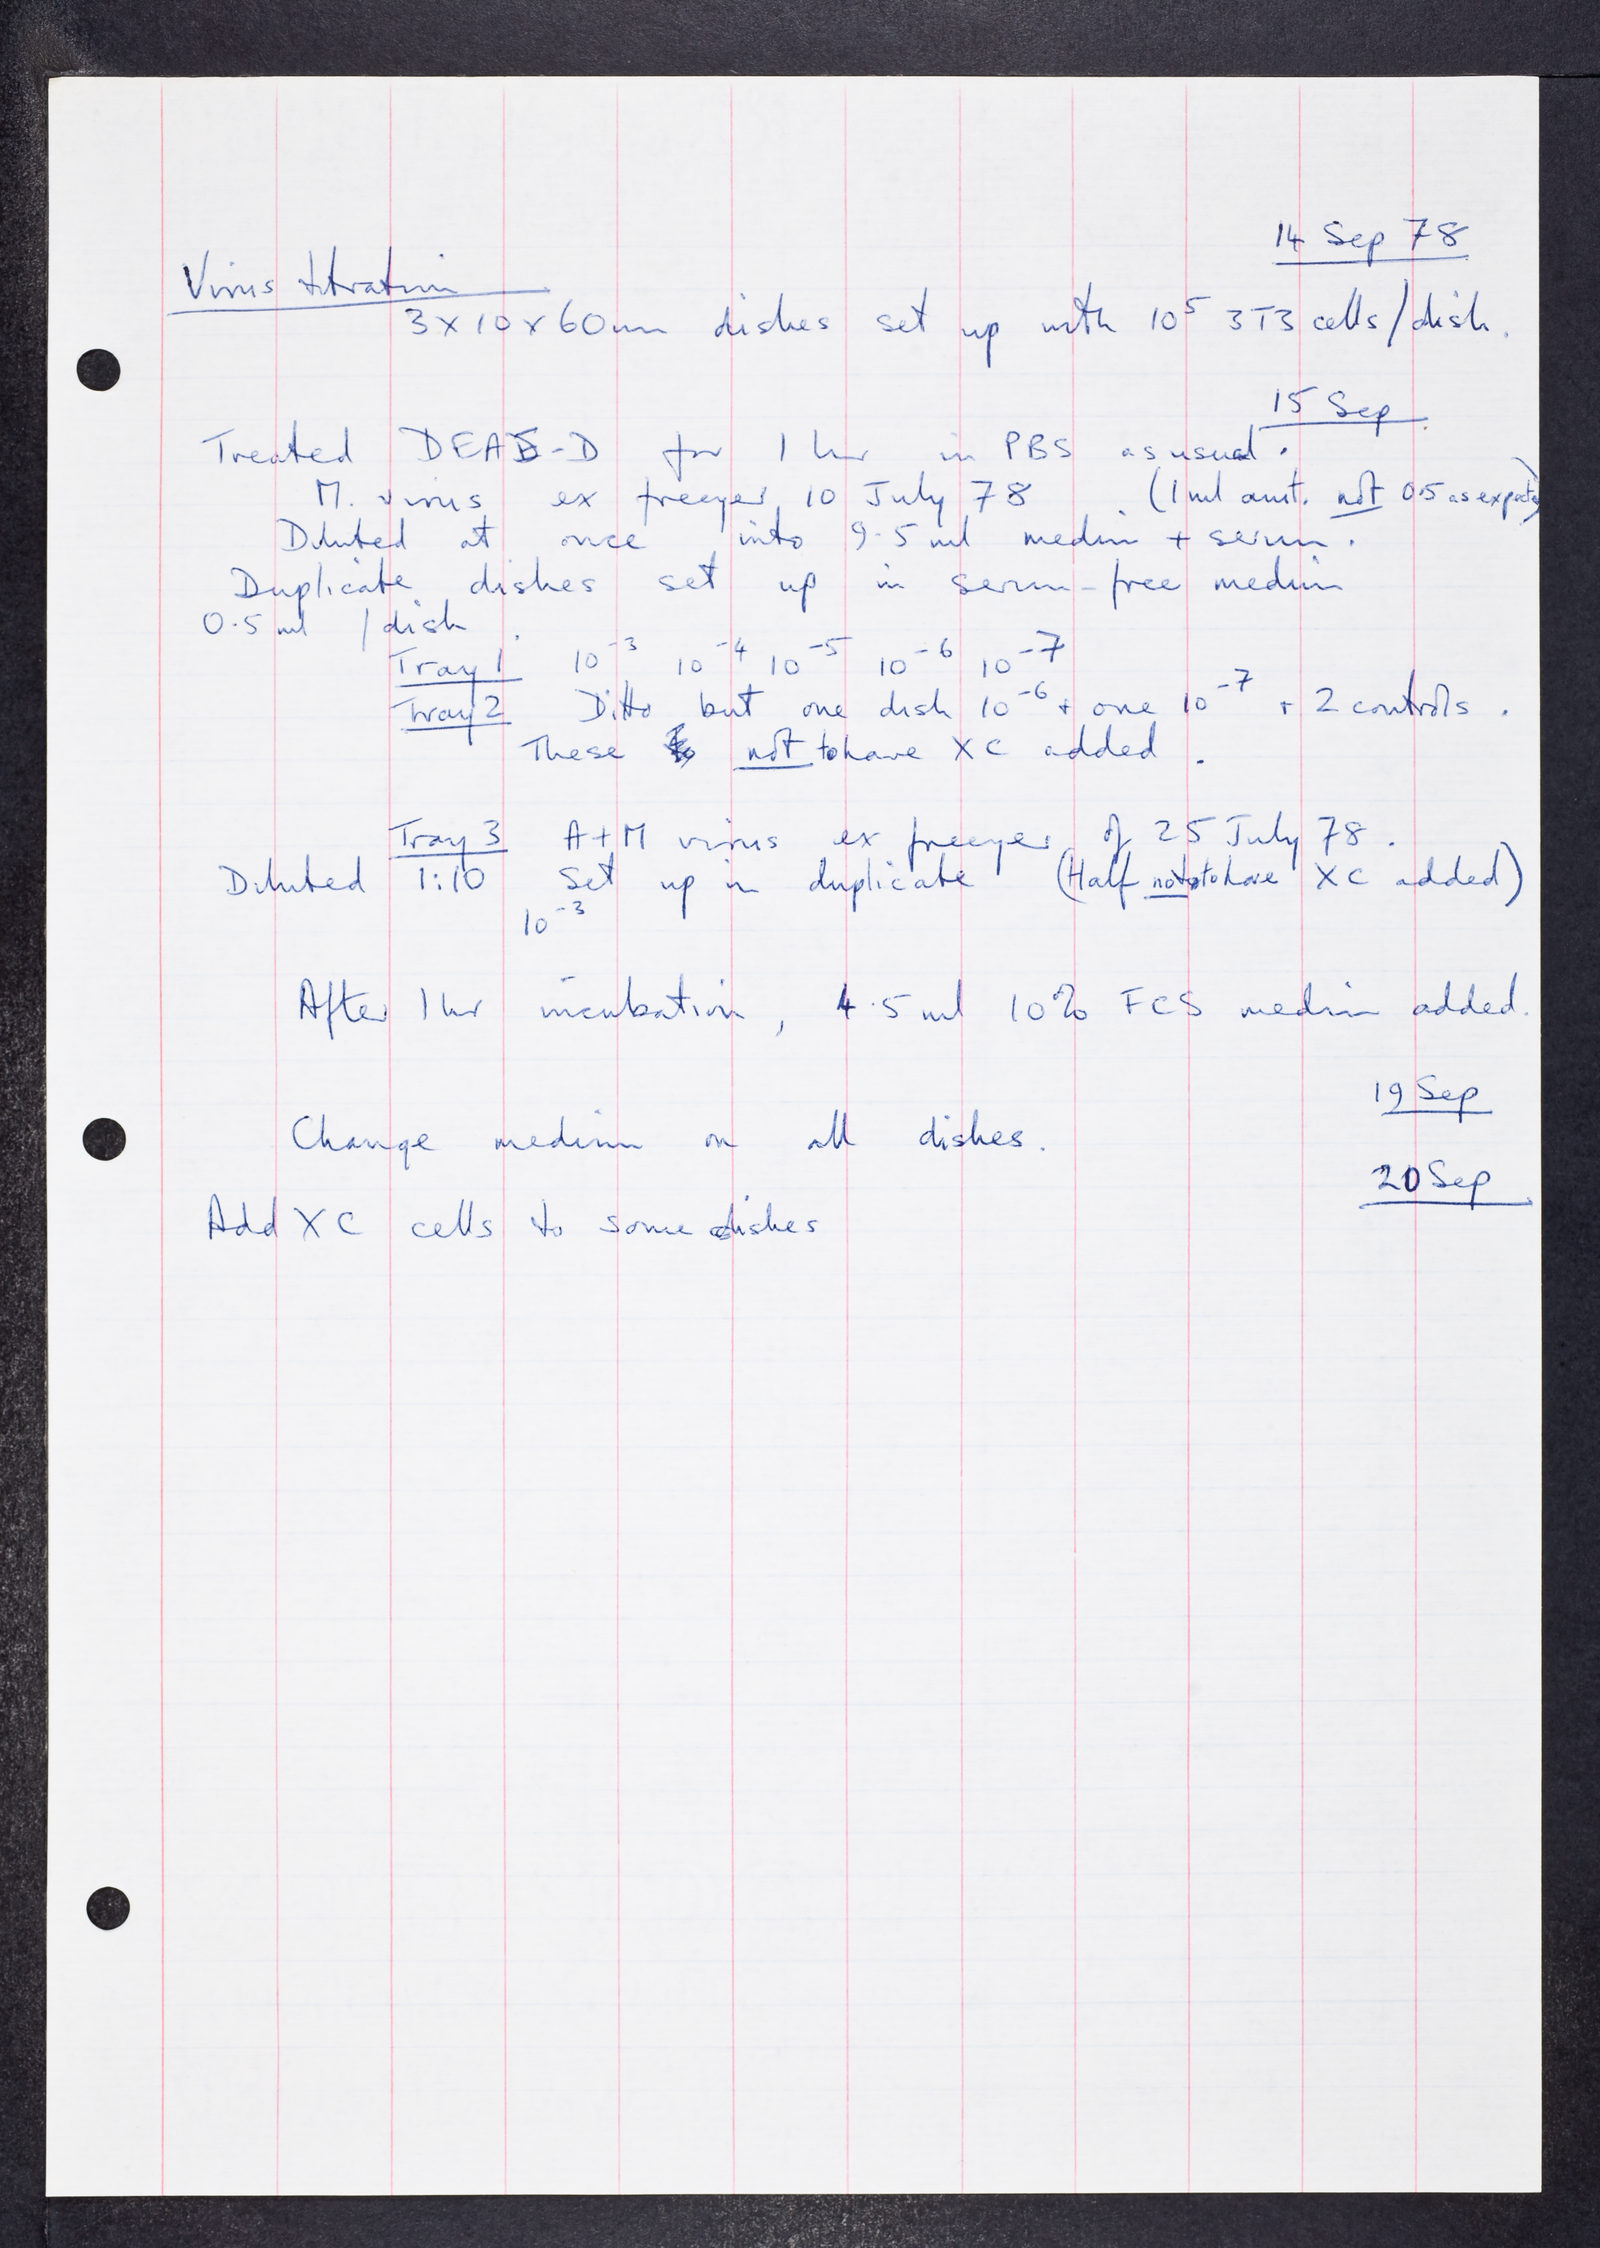 14 Sep 78
Virus titration
3 x 10 x 60mm dishes set up with 10⁵ 3T3 cells/dish.
15 Sep
Treated DEAE-D for 1 hr in PBS as usual.
M. virus ex freezer 10 July 78 (1 ml amt. not 0.5 as expected)
Diluted at once into 9.5 ml medium + serum.
Duplicate dishes set up in serum-free medium
0.5 ml /dish.
Tray 1 10⁻³ 10⁻⁴ 10⁻⁵ 10⁻⁶ 10⁻⁷
Tray 2 Ditto but one dish 10⁻⁶ + one 10⁻⁷ + 2 controls.
These not to have XC added.
Tray 3 A+M virus ex freezer of 25 July 78.
Diluted 1:10 Set up in duplicate (Half not to have XC added)
10⁻³
After 1 hr incubation, 4.5 ml 10% FCS medium added.
19 Sep
Change medium on all dishes.
20 Sep
Add XC cells to some dishes